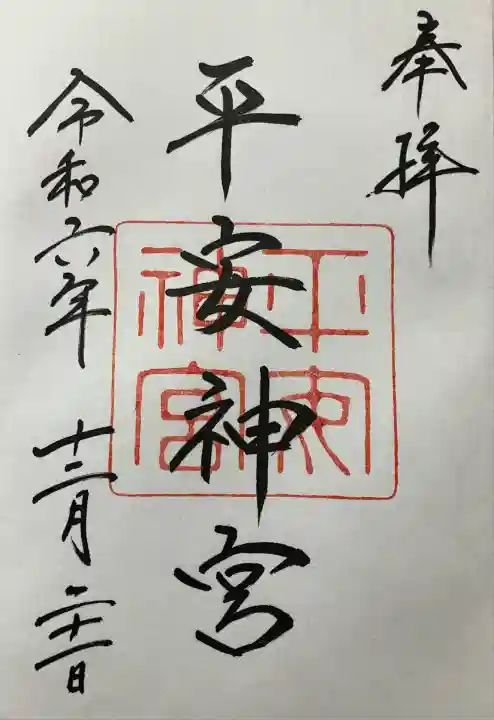 奉拝
平安神宮
平安
神宮
令和六年 十二月 二十一日